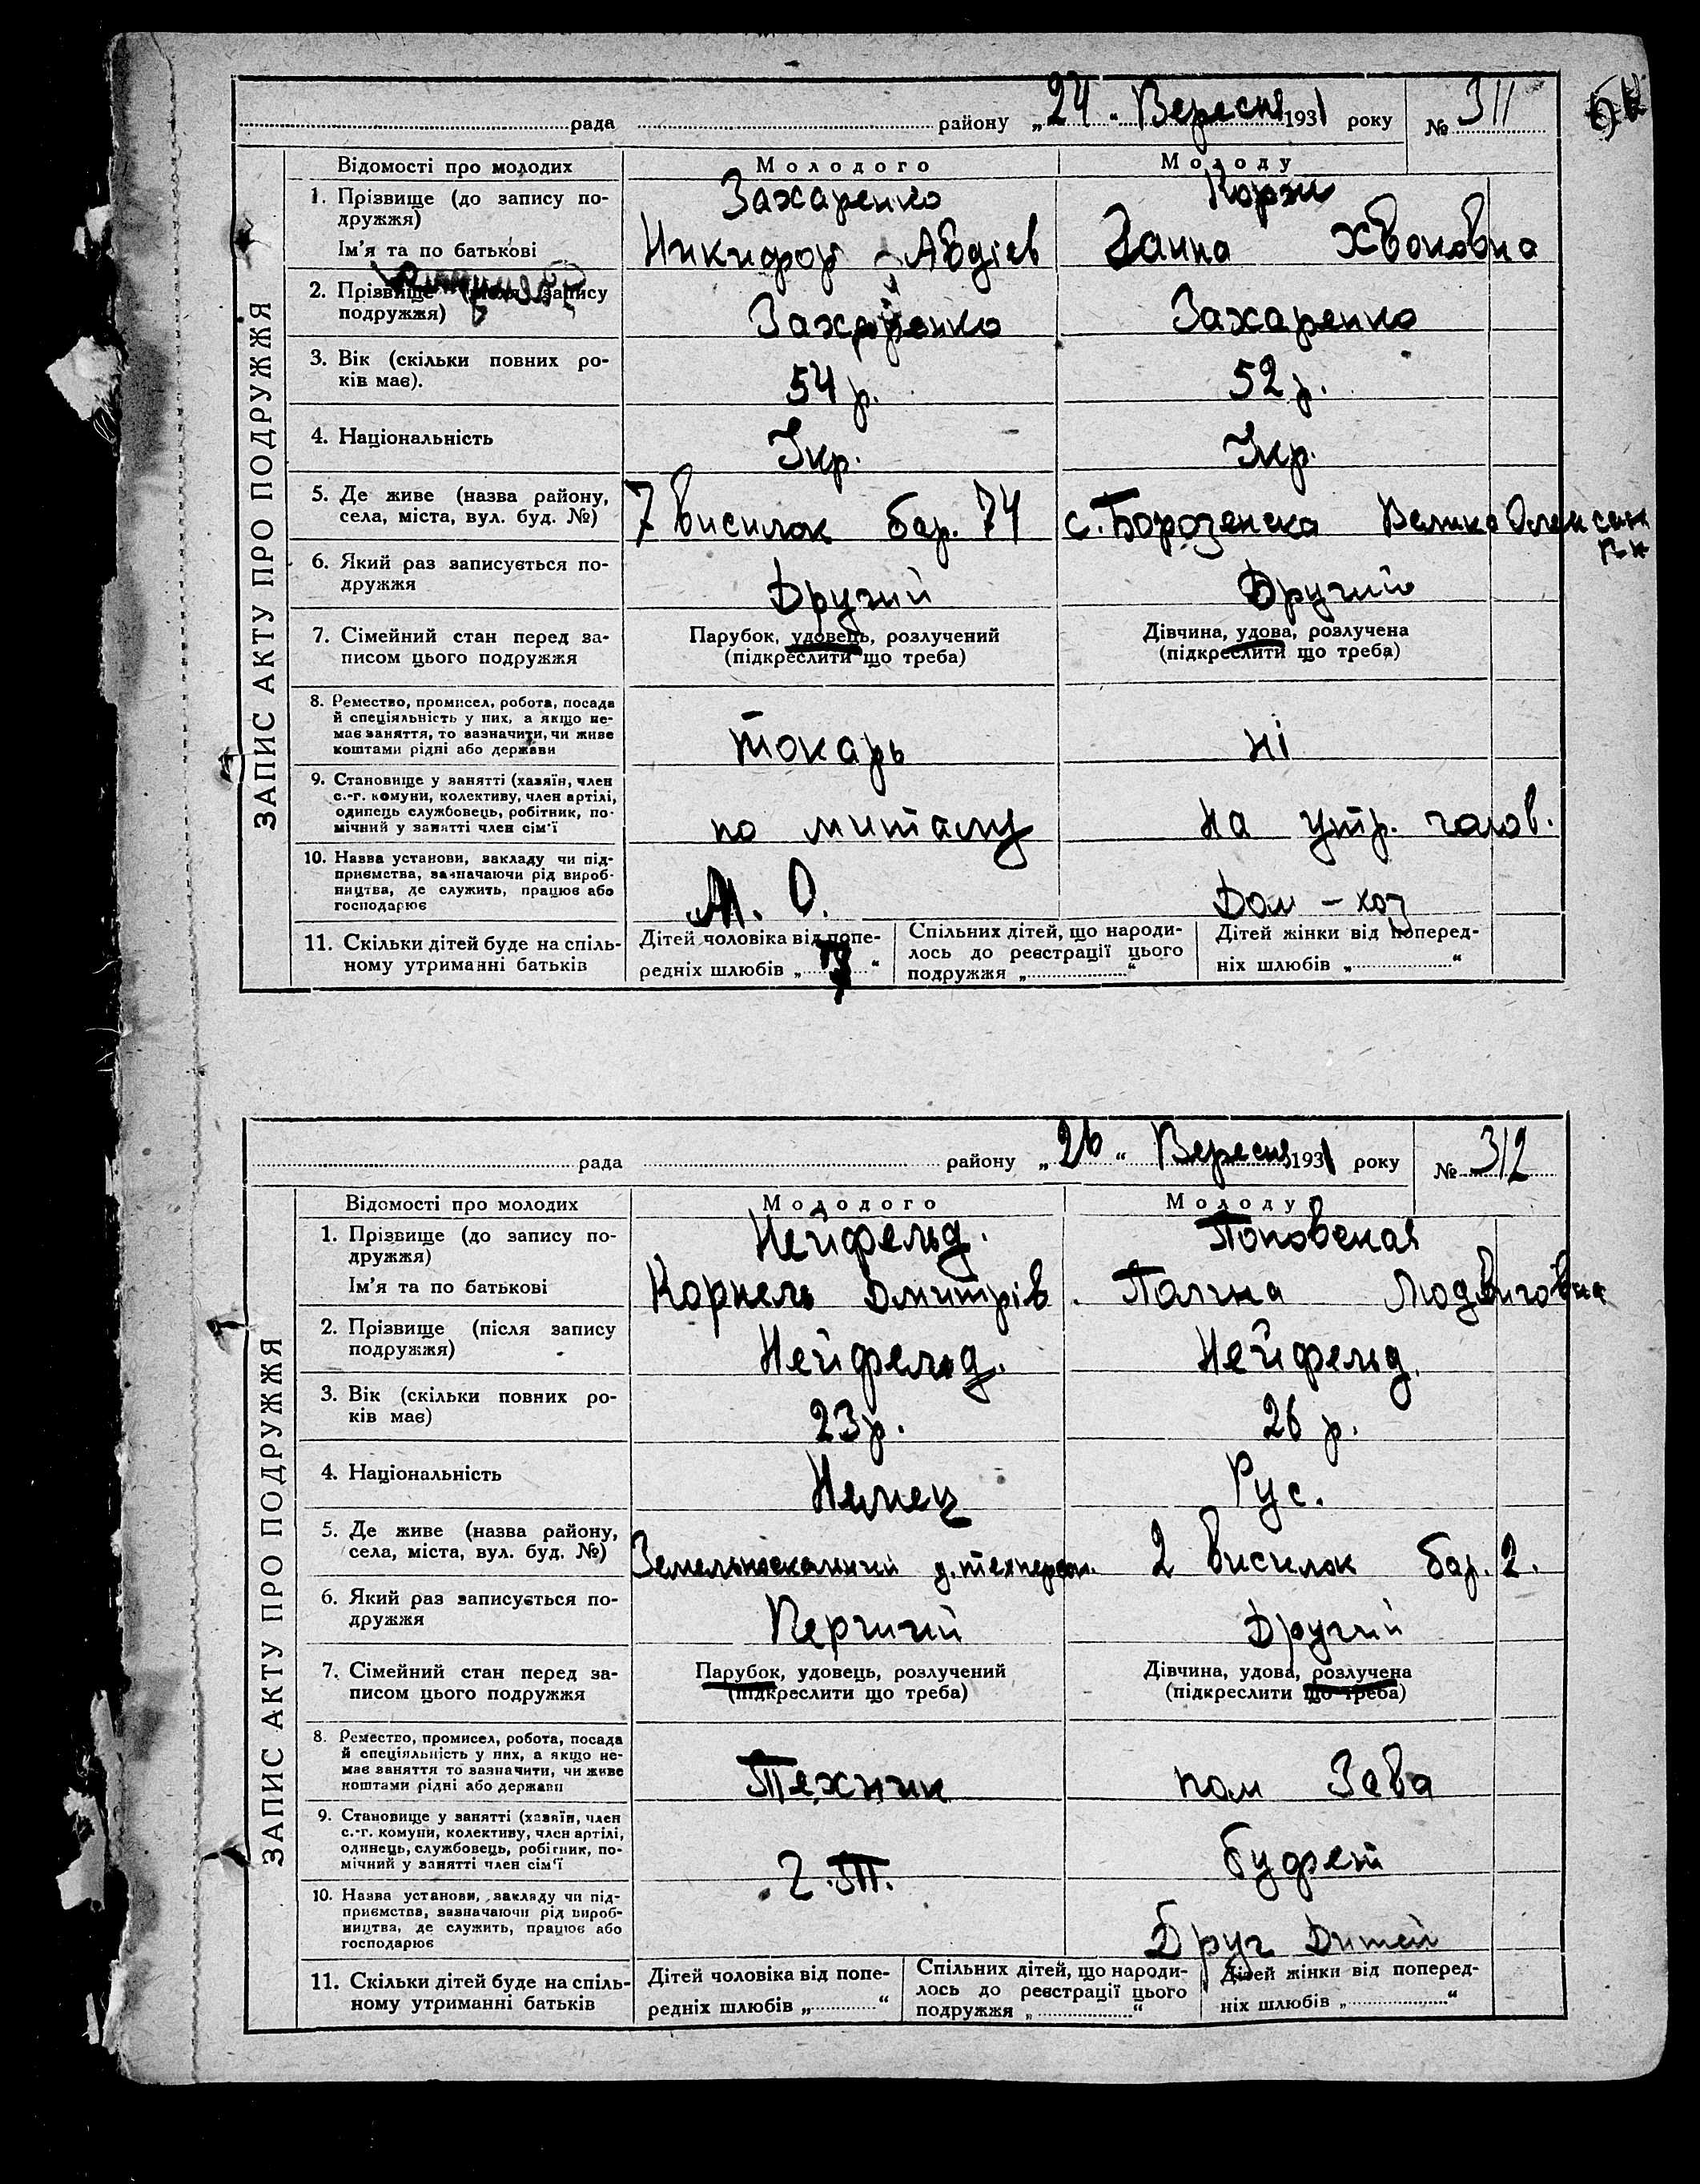 рада района „24“ Вересня 1931 року № 311
ЗАПИС АКТУ ПРО ПОДРУЖЖЯ
Відомості про молодих Молодого Молоду
1. Прізвище (до запису по- Захаренко Корж
дружжя)
Ім'я та по батькові Никифор Авдіев Ганна
2. Прізвище (після запису
подружжя) Захаренко Захаренко
3. Вік (скільки повних ро-
ків має). 54 р. 52 р.
4. Національність Укр. Укр.
5. Де живе (назва району,
села, міста, вул. буд. №) 7 висилок бар. 74 с. Борозенска Велико Олексан
р-н
6. Який раз записується по-
дружжя Другий Другий
7. Сімейний стан перед за- Парубок, удовець, розлучений Дівчина, удова, розлучена
писом цього подружжя (підкреслити що треба) (підкреслити що треба)
8. Ремество, промисел, робота, посада
й спеціяльність у них, а якщо не-
має заняття, то зазначити, чи живе
коштами рідні або держави токарь ні
9. Становище у занятті (хазяїн, член
с.-г. комуни, колективу, член артілі,
одинець службовець, робітник, по-
мічний у занятті член сім'ї по миталу на утр. чолов.
10. Назва установи, закладу чи під-
приємства, зазначаючи рід вироб-
ництва, де служить, працює або
господарює М. О. Дом – хоз
11. Скільки дітей буде на спіль- Дітей чоловіка від попе- Спільних дітей, що народи- Дітей жінки від поперед-
ному утриманні батьків редніх шлюбів „ “ лось до реєстрації цього ніх шлюбів „ “
подружжя „ “
рада району „26“ Вересня 1931 року № 312
ЗАПИС АКТУ ПРО ПОДРУЖЖЯ
Відомості про молодих Молодого Молоду
1. Прізвище (до запису по- Нейфельд. Поповская
дружжя)
Ім'я та по батькові Корнель Дмитрів. Полина Людвиговна
2. Прізвище (після запису
подружжя) Нейфельд. Нейфельд.
3. Вік (скільки повних ро-
ків має) 23 р. 26 р.
4. Національність Немец Рус.
5. Де живе (назва району,
села, міста, вул. буд. №) д. техперсон. 2 висилок бар. 2.
6. Який раз записується по-
дружжя Перший Другий
7. Сімейний стан перед за- Парубок, удовець, розлучений Дівчина, удова, розлучена
писом цього подружжя (підкреслити що треба) (підкреслити що треба)
8. Ремество, промисел, робота, посада
й спеціяльність у них, а якщо не-
має заняття то зазначити, чи живе
коштами рідні або держави Техник пом Зава
9. Становище у занятті (хазяїн, член
с.-г. комуни, колективу, член артілі,
одинець, службовець, робітник, по-
мічний у занятті член сім'ї буфет
10. Назва установи, закладу чи під-
приємства, зазначаючи рід вироб-
ництва, де служить, працює або
господарює Друг Дитей
11. Скільки дітей буде на спіль- Дітей чоловіка від попе- Спільних дітей, що народи- Дітей жінки від поперед-
ному утриманні батьків редніх шлюбів „ “ лось до реєстрації цього ніх шлюбів „ “
подружжя „ “